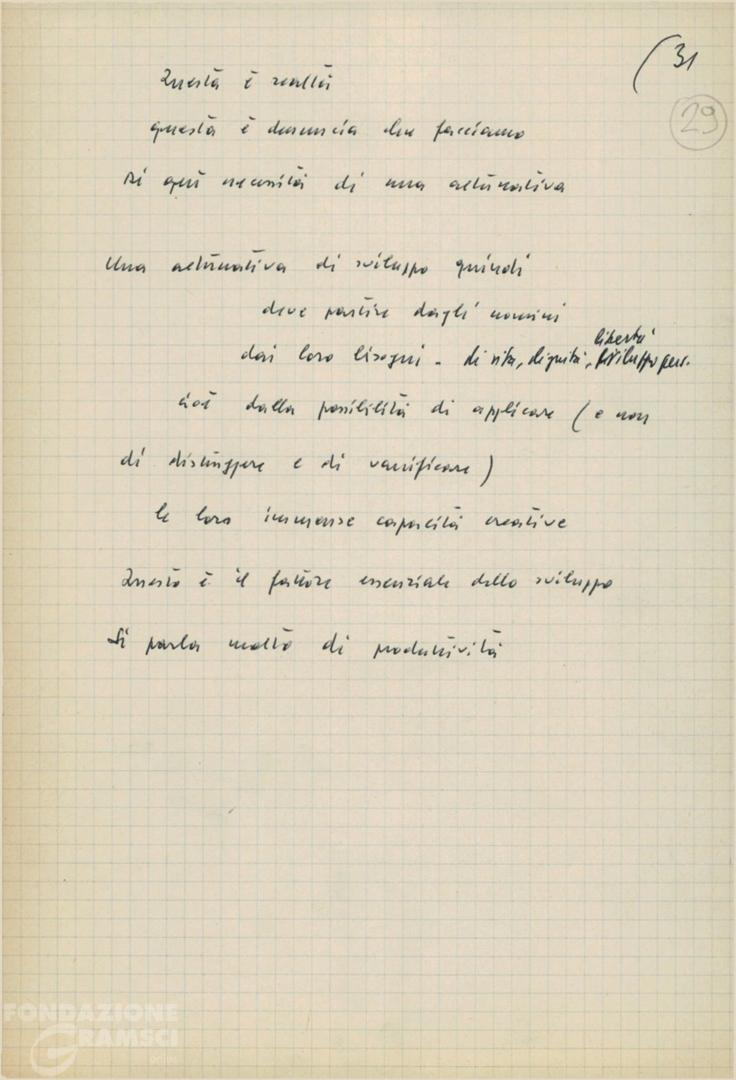 (31
29
Questa è realtà
questa è denuncia che facciamo
Di qui necessità di una alternativa
Una alternativa di sviluppo quindi
deve partire dagli uomini
libertà
dai loro bisogni - di vita, dignità, sviluppo pers.
cioè dalla possibilità di applicare (e non
di distruggere e di vanificare)
le loro immense capacità creative
Questo è il fattore essenziale dello sviluppo
Si parla molto di produttività
FONDAZIONE
GRAMSCI